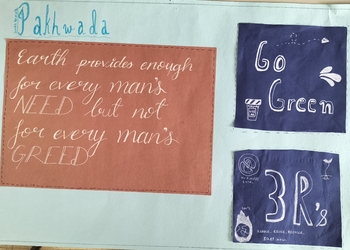 Pakhwada
Earth provides enough
for every man's
NEED but not
for every man's
GREED
Go
Green
3R's